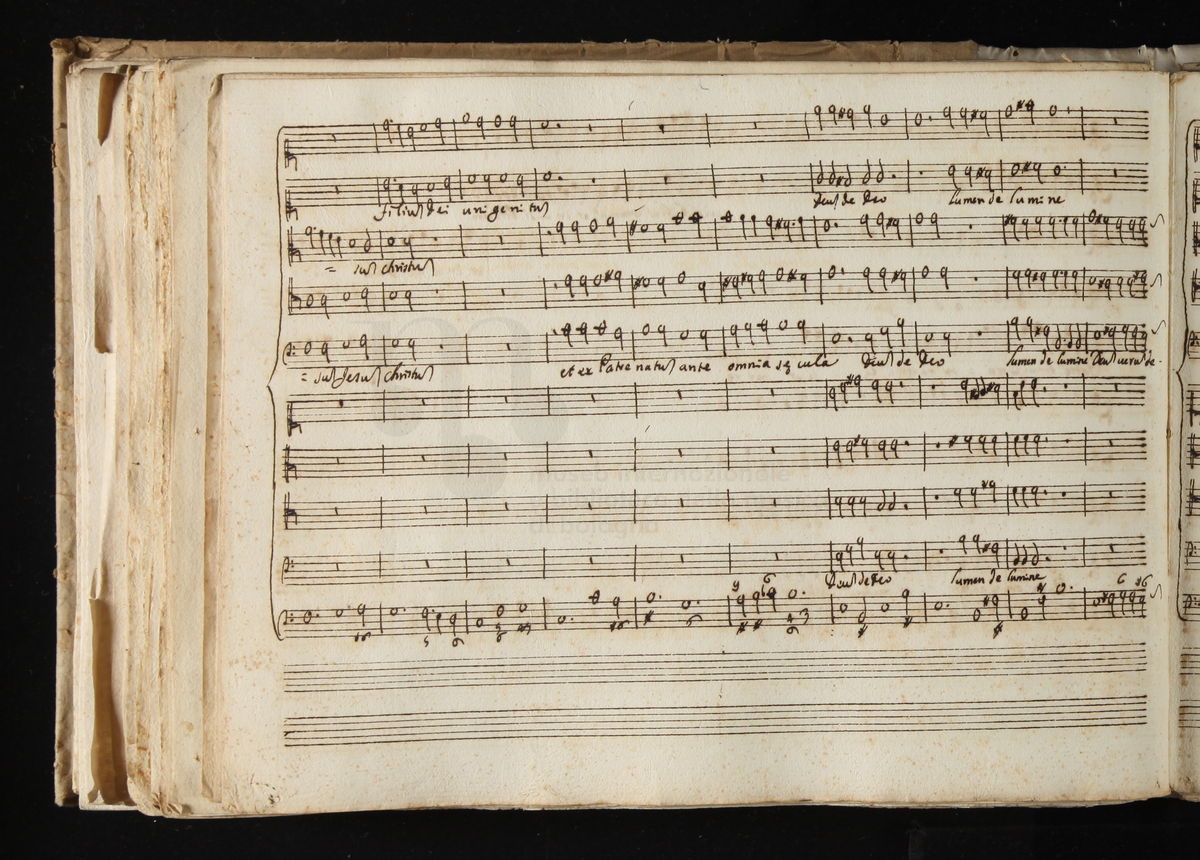 filius Dei unigenitus Deus de Deo Lumen de lumine
= sus christus
= sus Jesus christus et ex Patre natus ante omnia secula Deus de Deo lumen de lumine Deus verus de
museo internazionale
e biblioteca della musica
di bologna
Deus de Deo Lumen de lumine